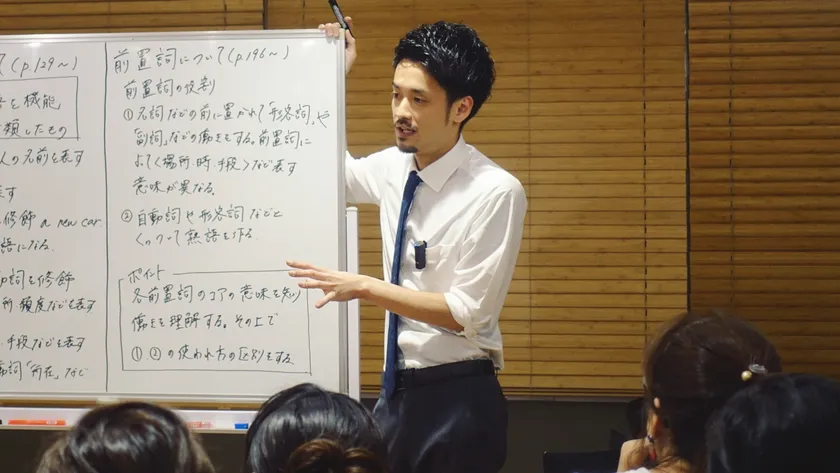 て(p.129~)
機能
類したもの
人の名前を表す
表す
修飾 a new car.
語になる.
動詞を修飾
所・頻度などを表す
・手段など表す
動詞「所在」など
前置詞について(p.196~)
前置詞の役割
①名詞などの前に置かれて「形容詞」や
「副詞」などの働きをする。前置詞に
よって<場所・時・手段>など表す
意味が異なる.
②自動詞や形容詞などと
くっついて熟語を作る.
ポイント
各前置詞のコアの意味を知り
働きを理解する。その上で
①②の使われ方の区別をする.